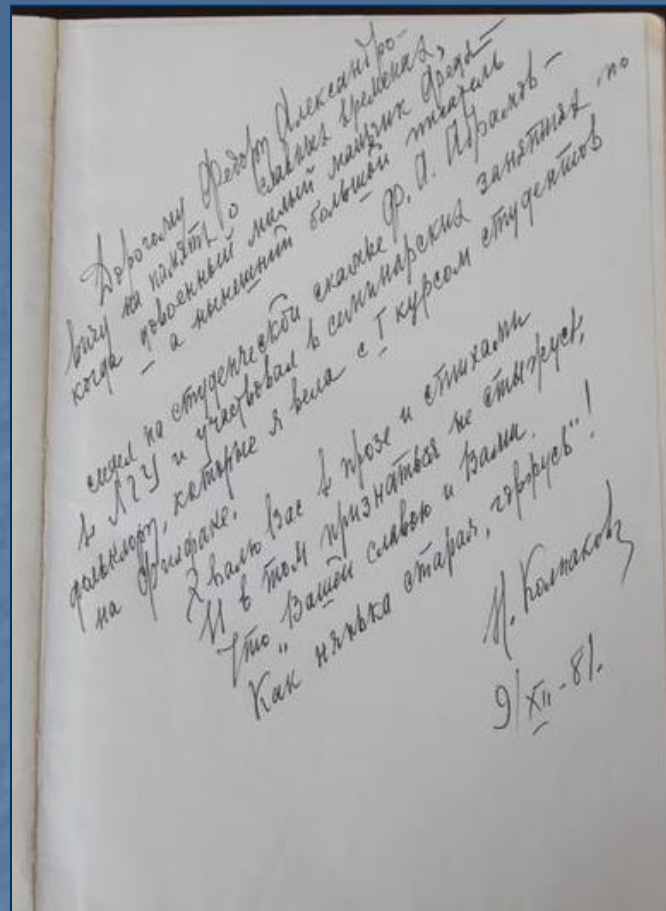 Дорогому Федору Александро-
вичу на память о славных временах,
когда довоенный милый мальчик Федя –
– а нынешний большой писатель
сидел на студенческой скамье Ф. А. Абрамов –
в ЛГУ и участвовал в семинарских занятиях по
фольклору, которые я вела с I курсом студентов
на Филфаке.
Хвалю Вас в прозе и стихами
И в том признаться не стыжусь,
Что "Вашей славою и Вами,
Как нянька старая, горжусь"!
Н. Колпакова
9/XII-81.